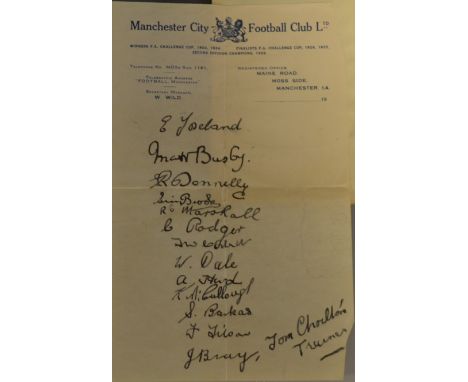 Manchester City Football Club Ltd
WINNERS F.A. CHALLENGE CUP, 1904, 1934.
FINALISTS F.A. CHALLENGE CUP, 1926, 1933.
SECOND DIVISION CHAMPIONS, 1928.
TELEPHONE No. MOSs Side 1191.
TELEGRAPHIC ADDRESS
"FOOTBALL, MANCHESTER."
SECRETARY MANAGER,
W. WILD.
REGISTERED OFFICE
MAINE ROAD,
MOSS SIDE,
MANCHESTER, 14.
19
E Toseland
Matt Busby.
R Donnelly
Eric Brook
R. Marshall
C Rodger
W. Dale
A Herd
K McCullough
S. Barkas
F Tilson
J Bray,
Tom Chorlton
Trainer